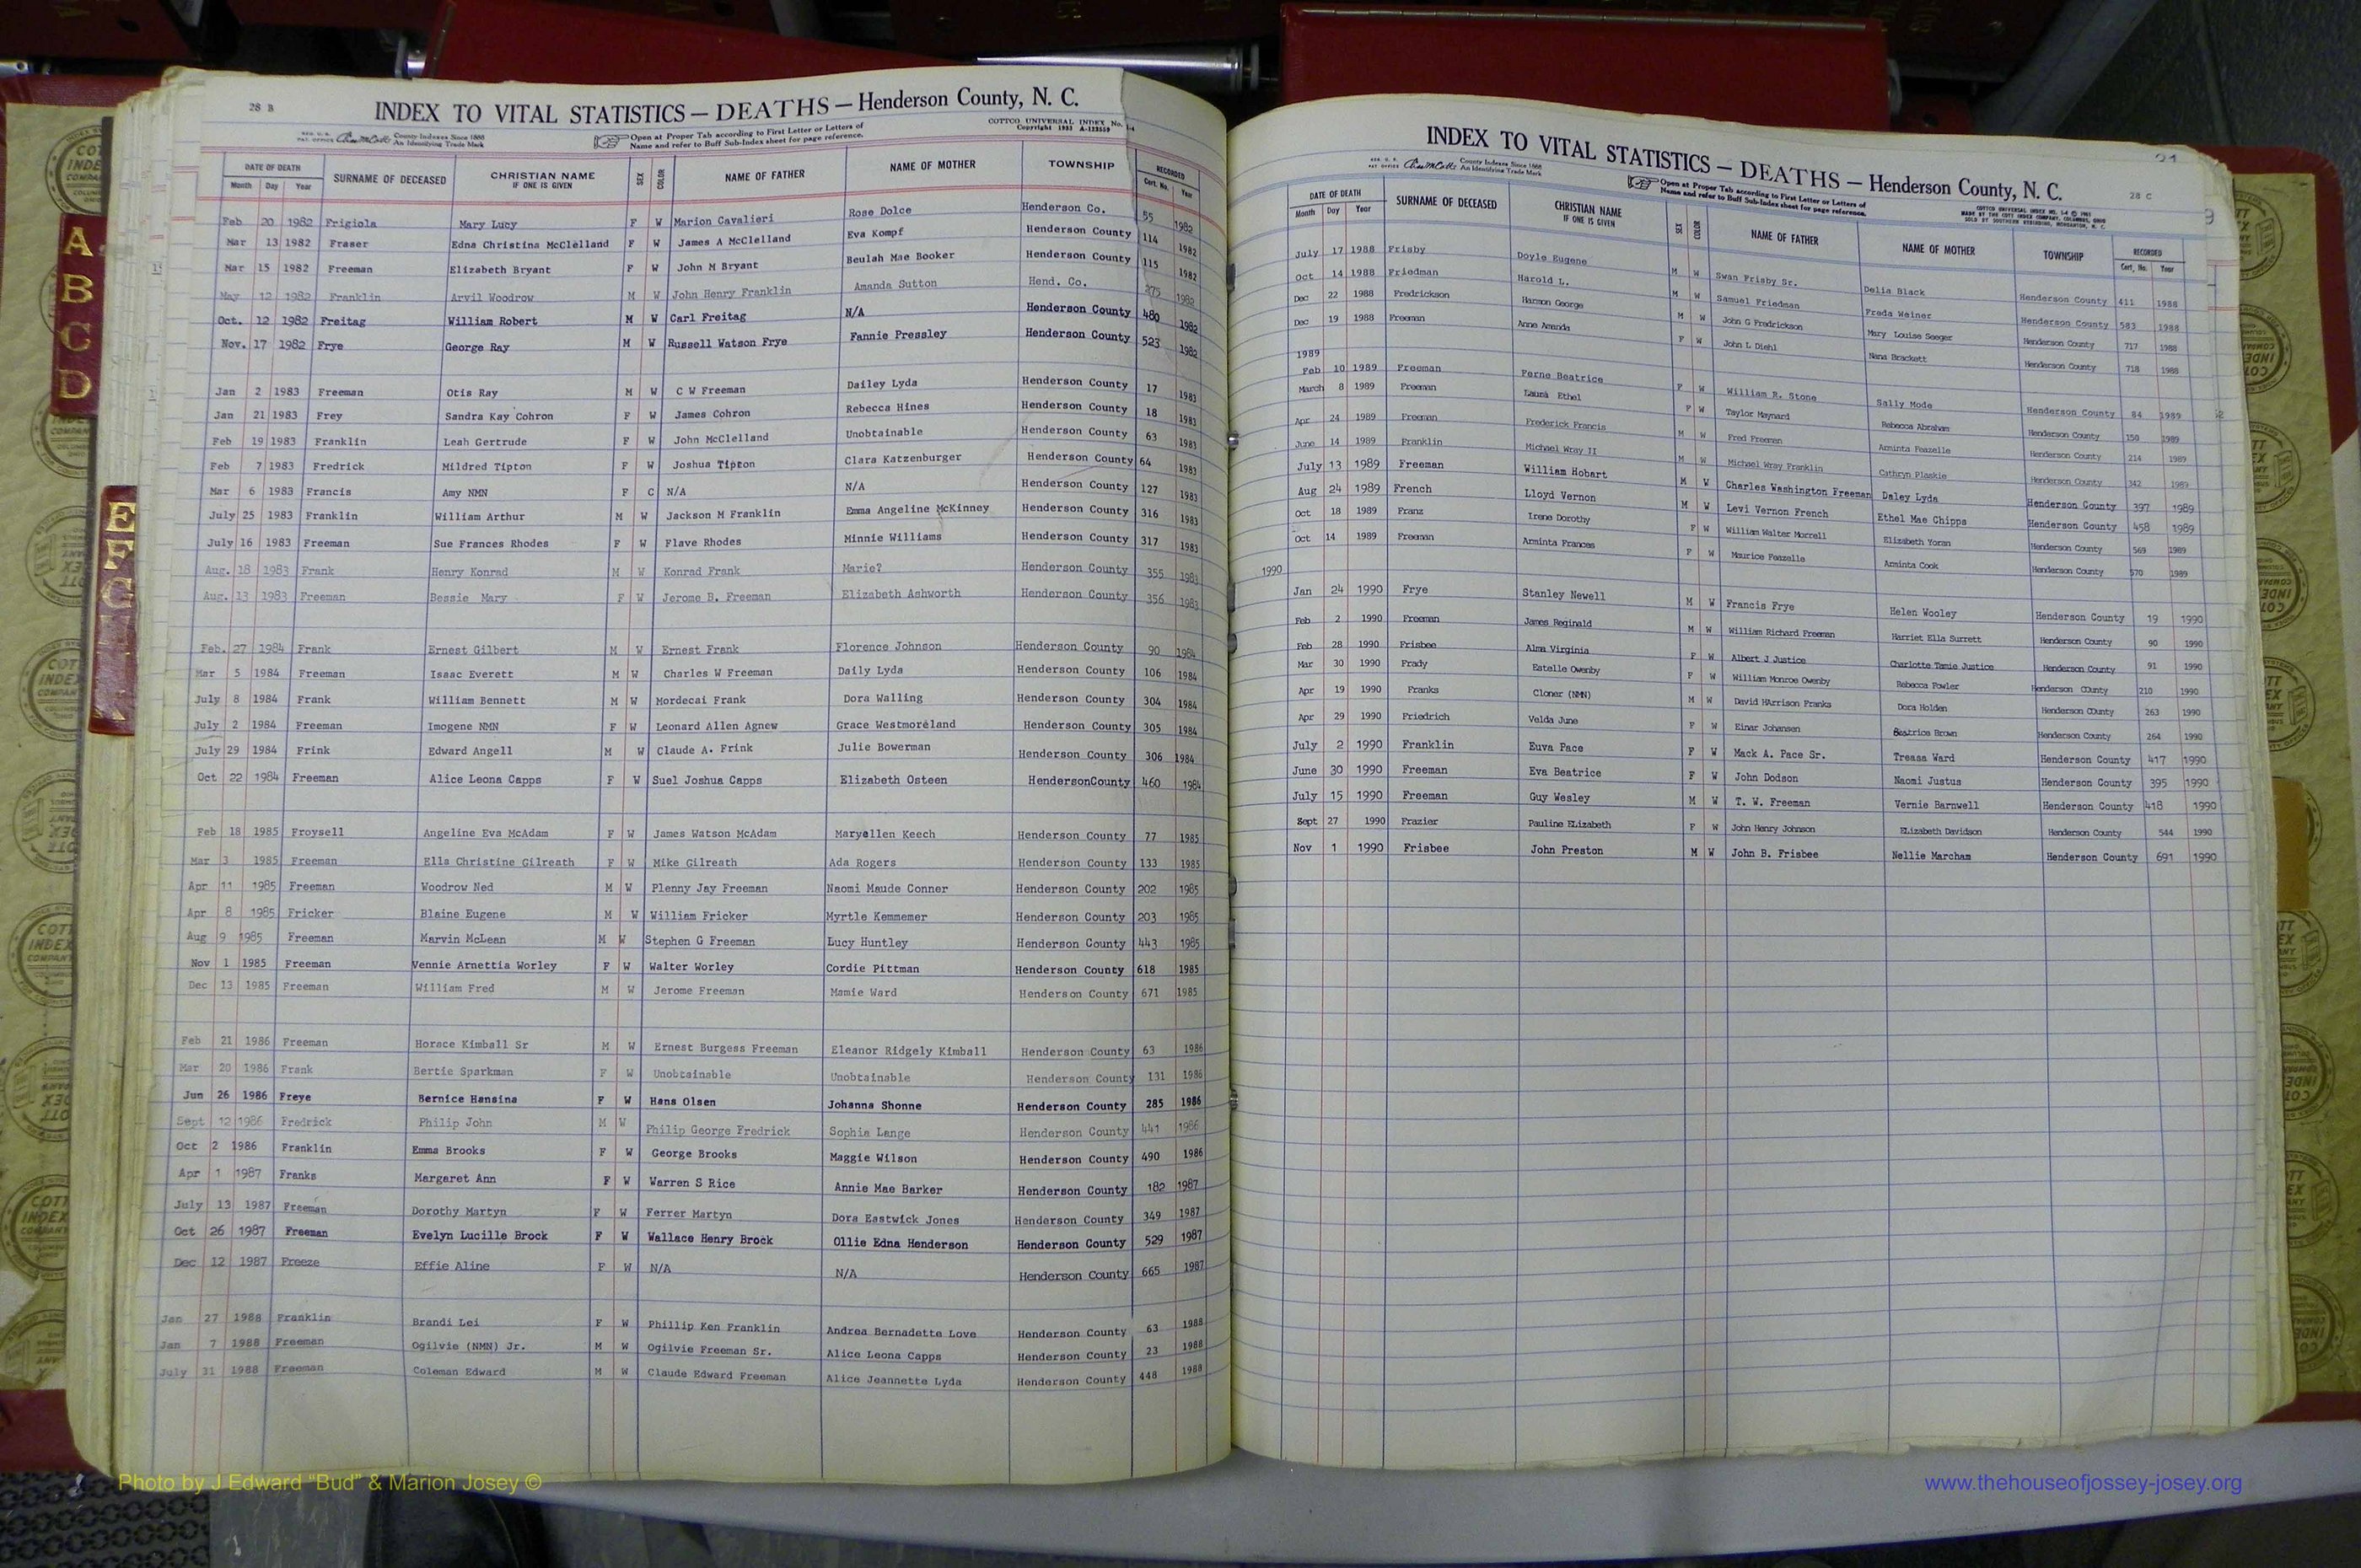 28 B
INDEX TO VITAL STATISTICS — DEATHS — Henderson County, N. C.
REG. U. S. PAT. OFFICE County Indexes Since 1888 An Identifying Trade Mark
Open at Proper Tab according to First Letter or Letters of Name and refer to Buff Sub-Index sheet for page reference.
COTTCO UNIVERSAL INDEX No.
Copyright 1933 A-123559
DATE OF DEATH Month Day Year SURNAME OF DECEASED CHRISTIAN NAME IF ONE IS GIVEN SEX COLOR NAME OF FATHER NAME OF MOTHER TOWNSHIP RECORDED Cert. No. Year
Feb 20 1982 Frigiola Mary Lucy F W Marion Cavalieri Rose Dolce Henderson Co. 55 1982
Mar 13 1982 Fraser Edna Christina McClelland F W James A McClelland Eva Kompf Henderson County 114 1982
Mar 15 1982 Freeman Elizabeth Bryant F W John M Bryant Beulah Mae Booker Henderson County 115 1982
May 12 1982 Franklin Arvil Woodrow M W John Henry Franklin Amanda Sutton Hend. Co. 275 1982
Oct. 12 1982 Freitag William Robert M W Carl Freitag N/A Henderson County 480 1982
Nov. 17 1982 Frye George Ray M W Russell Watson Frye Fannie Pressley Henderson County 523 1982
Jan 2 1983 Freeman Otis Ray M W C W Freeman Dailey Lyda Henderson County 17 1983
Jan 21 1983 Frey Sandra Kay Cohron F W James Cohron Rebecca Hines Henderson County 18 1983
Feb 19 1983 Franklin Leah Gertrude F W John McClelland Unobtainable Henderson County 63 1983
Feb 7 1983 Fredrick Mildred Tipton F W Joshua Tipton Clara Katzenburger Henderson County 64 1983
Mar 6 1983 Francis Amy NMN F C N/A N/A Henderson County 127 1983
July 25 1983 Franklin William Arthur M W Jackson M Franklin Emma Angeline McKinney Henderson County 316 1983
July 16 1983 Freeman Sue Frances Rhodes F W Flave Rhodes Minnie Williams Henderson County 317 1983
Aug. 18 1983 Frank Henry Konrad M W Konrad Frank Marie? Henderson County 355 1983
Aug. 13 1983 Freeman Bessie Mary F W Jerome B. Freeman Elizabeth Ashworth Henderson County 356 1983
Feb. 27 1984 Frank Ernest Gilbert M W Ernest Frank Florence Johnson Henderson County 90 1984
Mar 5 1984 Freeman Isaac Everett M W Charles W Freeman Daily Lyda Henderson County 106 1984
July 8 1984 Frank William Bennett M W Mordecai Frank Dora Walling Henderson County 304 1984
July 2 1984 Freeman Imogene NMN F W Leonard Allen Agnew Grace Westmoreland Henderson County 305 1984
July 29 1984 Frink Edward Angell M W Claude A. Frink Julie Bowerman Henderson County 306 1984
Oct 22 1984 Freeman Alice Leona Capps F W Suel Joshua Capps Elizabeth Osteen HendersonCounty 460 1984
Feb 18 1985 Froysell Angeline Eva McAdam F W James Watson McAdam Maryellen Keech Henderson County 77 1985
Mar 3 1985 Freeman Ella Christine Gilreath F W Mike Gilreath Ada Rogers Henderson County 133 1985
Apr 11 1985 Freeman Woodrow Ned M W Plenny Jay Freeman Naomi Maude Conner Henderson County 202 1985
Apr 8 1985 Fricker Blaine Eugene M W William Fricker Myrtle Kemmemer Henderson County 203 1985
Aug 9 1985 Freeman Marvin McLean M W Stephen G Freeman Lucy Huntley Henderson County 443 1985
Nov 1 1985 Freeman Vennie Arnettia Worley F W Walter Worley Cordie Pittman Henderson County 618 1985
Dec 13 1985 Freeman William Fred M W Jerome Freeman Mamie Ward Henderson County 671 1985
Feb 21 1986 Freeman Horace Kimball Sr M W Ernest Burgess Freeman Eleanor Ridgely Kimball Henderson County 63 1986
Mar 20 1986 Frank Bertie Sparkman F W Unobtainable Unobtainable Henderson County 131 1986
Jun 26 1986 Freye Bernice Hansina F W Hans Olsen Johanna Shonne Henderson County 285 1986
Sept 12 1986 Fredrick Philip John M W Philip George Fredrick Sophie Lange Henderson County 441 1986
Oct 2 1986 Franklin Emma Brooks F W George Brooks Maggie Wilson Henderson County 490 1986
Apr 1 1987 Franks Margaret Ann F W Warren S Rice Annie Mae Barker Henderson County 182 1987
July 13 1987 Freeman Dorothy Martyn F W Ferrer Martyn Dora Eastwick Jones Henderson County 349 1987
Oct 26 1987 Freeman Evelyn Lucille Brock F W Wallace Henry Brock Ollie Edna Henderson Henderson County 529 1987
Dec 12 1987 Freeze Effie Aline F W N/A N/A Henderson County 665 1987
Jan 27 1988 Franklin Brandi Lei F W Phillip Ken Franklin Andrea Bernadette Love Henderson County 63 1988
Jan 7 1988 Freeman Ogilvie (NMN) Jr. M W Ogilvie Freeman Sr. Alice Leona Capps Henderson County 23 1988
July 31 1988 Freeman Coleman Edward M W Claude Edward Freeman Alice Jeannette Lyda Henderson County 448 1988
INDEX TO VITAL STATISTICS — DEATHS — Henderson County, N. C.
28 C
County Indexes Since 1888 An Identifying Trade Mark
Open at Proper Tab according to First Letter or Letters of Name and refer to Buff Sub-Index sheet for page reference.
DATE OF DEATH Month Day Year SURNAME OF DECEASED CHRISTIAN NAME IF ONE IS GIVEN SEX COLOR NAME OF FATHER NAME OF MOTHER TOWNSHIP RECORDED Cert. No. Year
July 17 1988 Frisby Doyle Eugene M W Swan Frisby Sr. Delia Black Henderson County 411 1988
Oct 14 1988 Friedman Harold L. M W Samuel Friedman Freda Weiner Henderson County 583 1988
Dec 22 1988 Fredrickson Harmon George M W John G Fredrickson Mary Louise Seeger Henderson County 717 1988
Dec 19 1988 Freeman Anne Amanda F W John L Diehl Nana Brackett Henderson County 718 1988
1989
Feb 10 1989 Freeman Ferne Beatrice F W William R. Stone Sally Mode Henderson County 84 1989
March 8 1989 Freeman Laura Ethel F W Taylor Maynard Rebecca Abraham Henderson County 150 1989
Apr 24 1989 Freeman Frederick Francis M W Fred Freeman Arminta Feazelle Henderson County 214 1989
June 14 1989 Franklin Michael Wray II M W Michael Wray Franklin Cathryn Plaskie Henderson County 342 1989
July 13 1989 Freeman William Hobart M W Charles Washington Freeman Daley Lyda Henderson County 397 1989
Aug 24 1989 French Lloyd Vernon M W Levi Vernon French Ethel Mae Chipps Henderson County 458 1989
Oct 18 1989 Franz Irene Dorothy F W William Walter Morrell Elizabeth Yoran Henderson County 569 1989
Oct 14 1989 Freeman Arminta Frances F W Maurice Feazelle Arminta Cook Henderson County 570 1989
1990
Jan 24 1990 Frye Stanley Newell M W Francis Frye Helen Wooley Henderson County 19 1990
Feb 2 1990 Freeman James Reginald M W William Richard Freeman Harriet Ella Surrett Henderson County 90 1990
Feb 28 1990 Frisbee Alma Virginia F W Albert J Justice Charlotte Tamie Justice Henderson County 91 1990
Mar 30 1990 Frady Estelle Owenby F W William Monroe Owenby Rebecca Fowler Henderson COunty 210 1990
Apr 19 1990 Franks Cloner (NMN) M W David HArrison Franks Dora Holden Henderson COunty 263 1990
Apr 29 1990 Friedrich Velda June F W Einar Johansen Beatrice Brown Henderson County 264 1990
July 2 1990 Franklin Euva Pace F W Mack A. Pace Sr. Treasa Ward Henderson County 417 1990
June 30 1990 Freeman Eva Beatrice F W John Dodson Naomi Justus Henderson County 395 1990
July 15 1990 Freeman Guy Wesley M W T. W. Freeman Vernie Barnwell Henderson County 418 1990
Sept 27 1990 Frazier Pauline ELizabeth F W John Henry Johnson ELizabeth Davidson Henderson County 544 1990
Nov 1 1990 Frisbee John Preston M W John B. Frisbee Nellie Marcham Henderson County 691 1990
A
B
C
D
E
F
G
Photo by J Edward “Bud” & Marion Josey ©
www.thehouseofjossey-josey.org